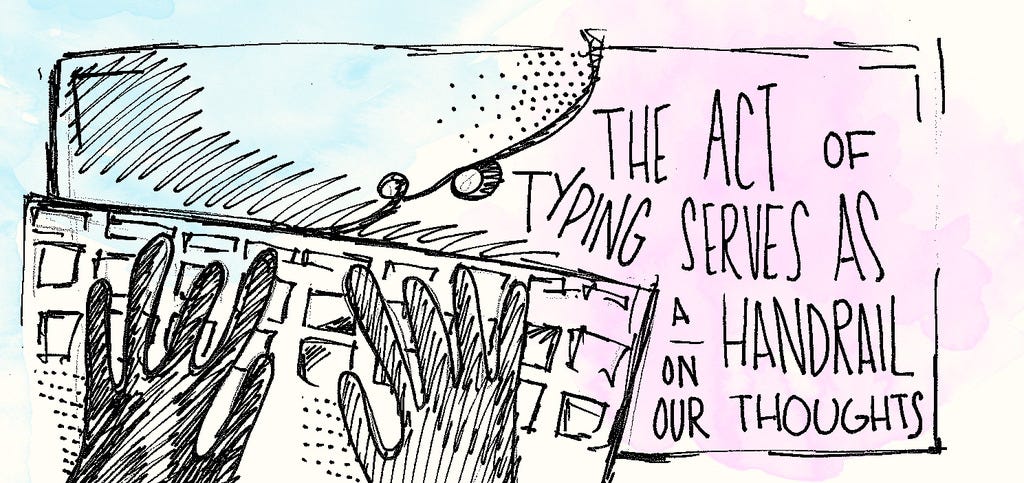 THE ACT OF
TYPING SERVES AS
A HANDRAIL
ON
OUR THOUGHTS